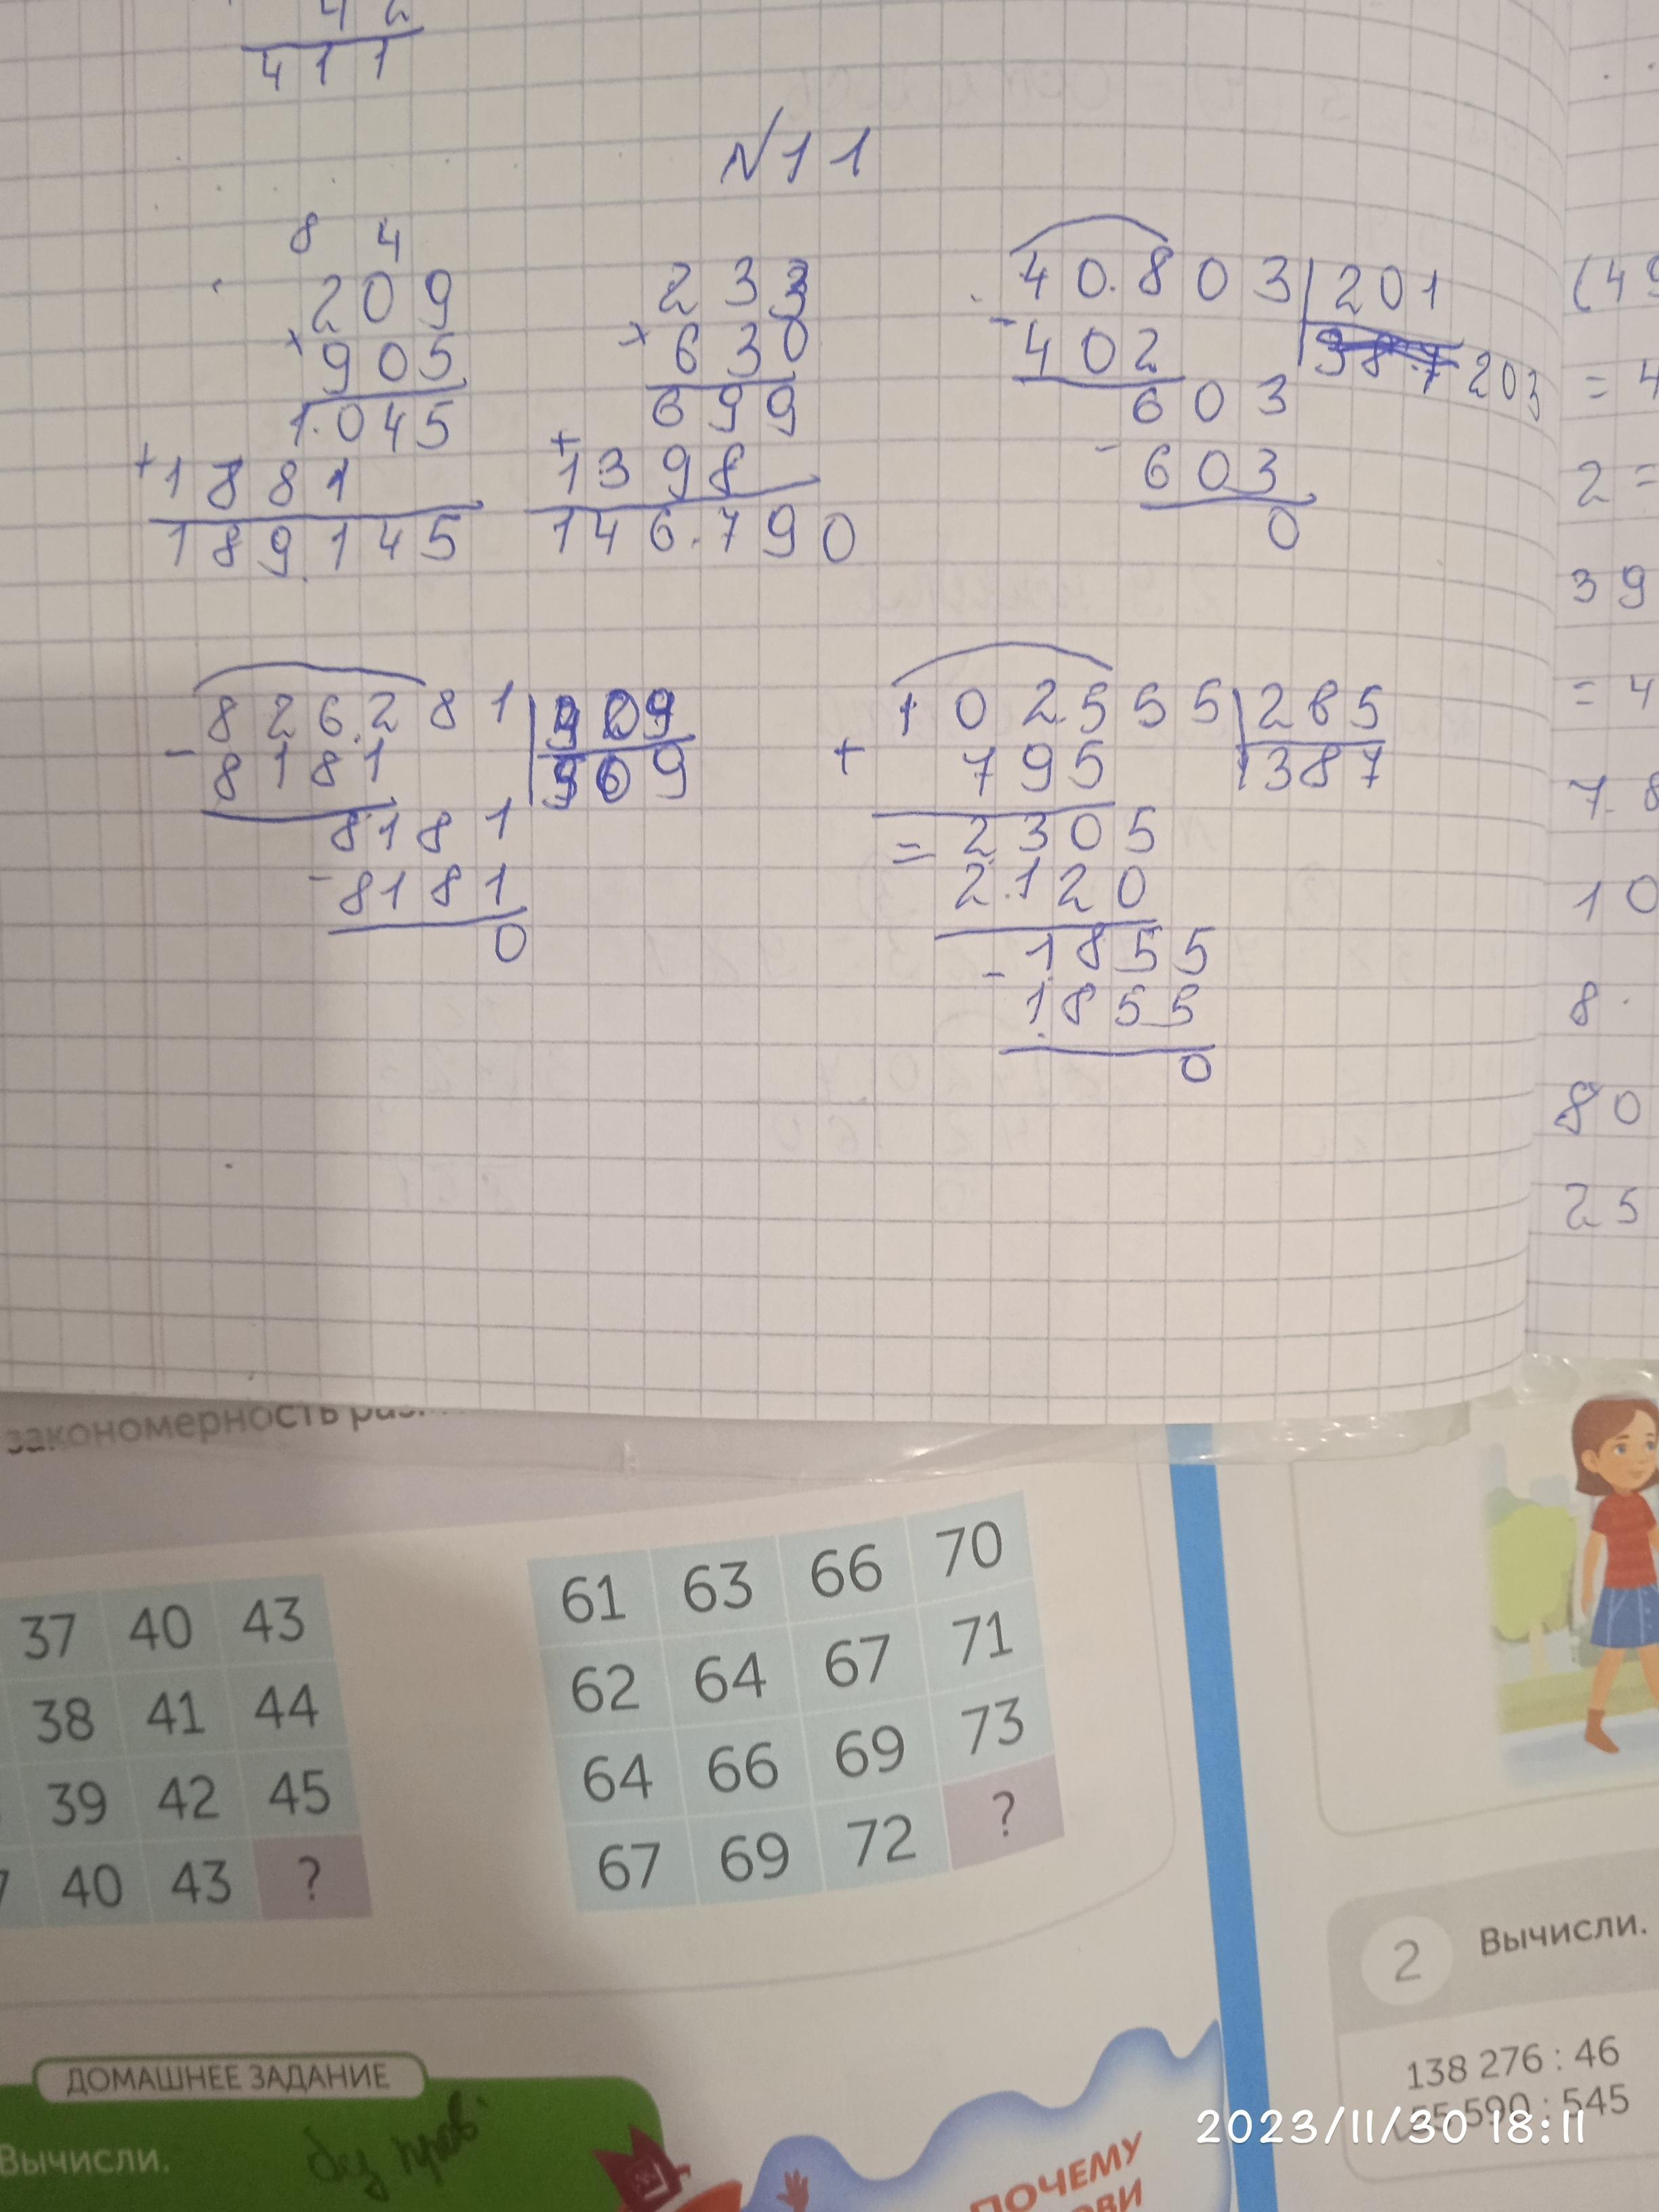 4 2
4 1 1
№11
8 4
209
× 905
1.045
+ 1881
189.145
233
× 630
699
+ 1398
146.790
40.803 | 201
- 402 203
603
- 603
0
826.281 | 909
- 8181 909
8181
- 8181
0
102.555 | 265
+ 795 1387
= 2.305
2.120
- 1.855
1.855
0
(49
= 4
2 =
39
= 4
7.8
10
8.
80
25
закономерность
37 40 43
38 41 44
39 42 45
40 43 ?
61 63 66 70
62 64 67 71
64 66 69 73
67 69 72 ?
ДОМАШНЕЕ ЗАДАНИЕ
Вычисли.
без пров.
ПОЧЕМУ
2 Вычисли.
138 276 : 46
55 590 : 545
2023/11/30 18:11